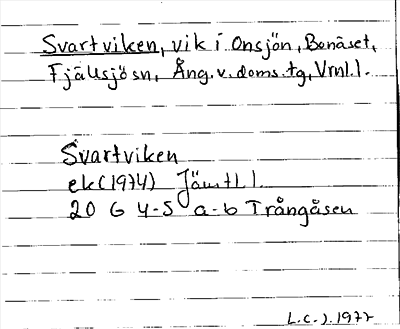 Svartviken, vik i Onsjön, Bonäset,
Fjällsjö sn, Ång. v. doms. tg, Vrnl. l.
Svartviken
ek (1974) Jämtl. l.
20 G 4-5 a-b Trångåsen
L.C.J. 1977